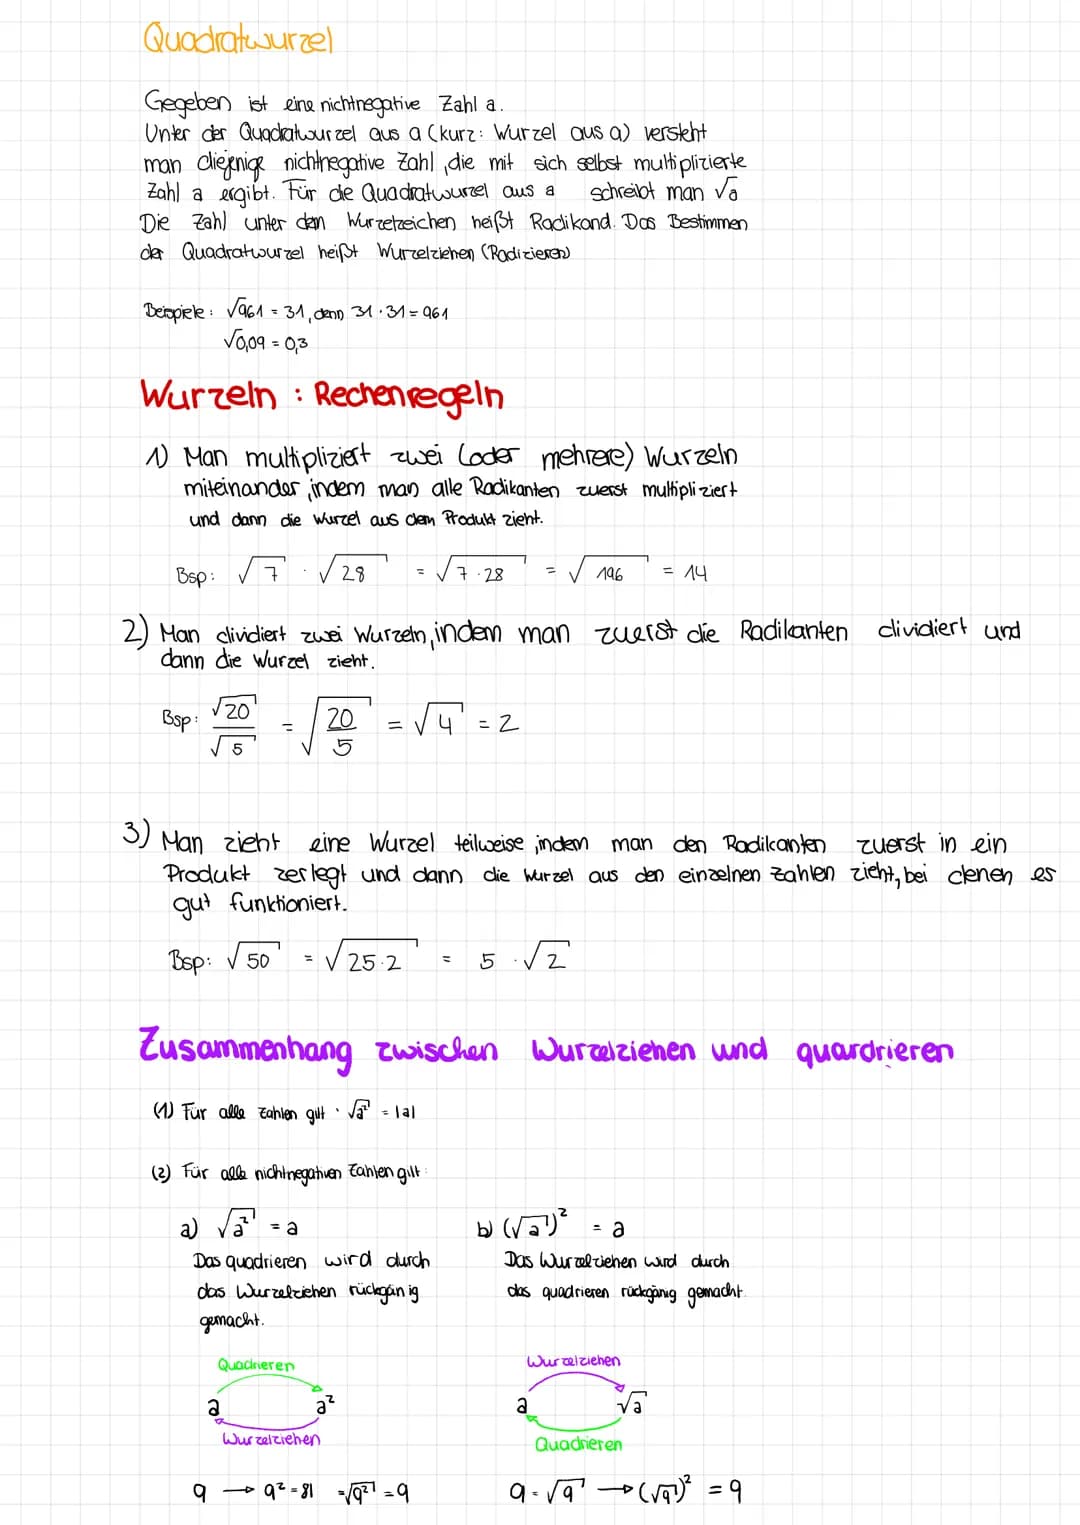 Quadratwurzel
Gegeben ist eine nichtnegative Zahl a.
Unter der Quadratwurzel aus a (kurz: Wurzel aus a) versteht
man diejenige nichtnegative Zahl, die mit sich selbst multiplizierte
Zahl a ergibt. Für die Quadratwurzel aus a schreibt man √a
Die Zahl unter dem Wurzelzeichen heißt Radikand. Das Bestimmen
der Quadratwurzel heißt Wurzelziehen (Radizieren)
Beispiele: √961 = 31, denn 31·31 = 961
√0,09 = 0,3
Wurzeln : Rechenregeln
1) Man multipliziert zwei (oder mehrere) Wurzeln
miteinander, indem man alle Radikanten zuerst multipliziert
und dann die Wurzel aus dem Produkt zieht.
Bsp: √7 · √28 = √7·28 = √196 = 14
2) Man dividiert zwei Wurzeln, indem man zuerst die Radikanten dividiert und
dann die Wurzel zieht.
Bsp: √20/√5 = √20/5 = √4 = 2
3) Man zieht eine Wurzel teilweise, indem man den Radikanten zuerst in ein
Produkt zerlegt und dann die Wurzel aus den einzelnen Zahlen zieht, bei denen es
gut funktioniert.
Bsp: √50 = √25·2 = 5 · √2
Zusammenhang zwischen Wurzelziehen und quardrieren
(1) Für alle Zahlen gilt : √a² = |a|
(2) Für alle nichtnegativen Zahlen gilt :
a) √a² = a
Das quadrieren wird durch
das Wurzelziehen rückgänig
gemacht.
b) (√a)² = a
Das Wurzelziehen wird durch
das quadrieren rückgänig gemacht.
Quadrieren
a a²
Wurzelziehen
Wurzelziehen
a √a
Quadrieren
9 → 9² = 81 = √9² = 9
9 = √9 → (√9)² = 9